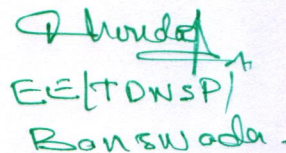 EE(TDWSP)
Banswada.